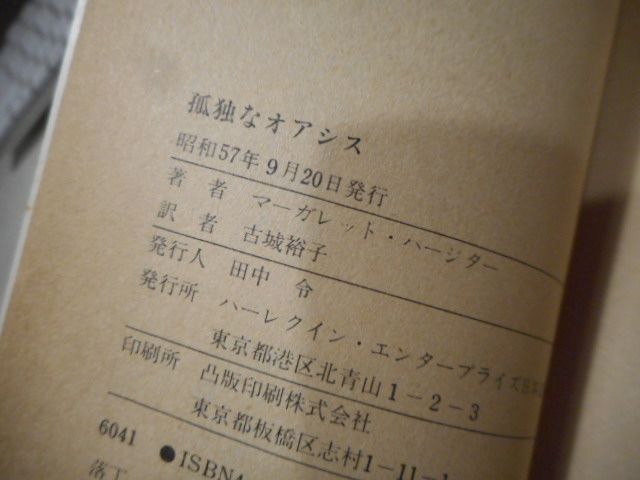 孤独なオアシス
昭和57年9月20日発行
著者 マーガレット・パージター
訳者 古城裕子
発行人 田中 令
発行所 ハーレクイン・エンタープライズ日本
東京都港区北青山1-2-3
印刷所 凸版印刷株式会社
東京都板橋区志村1-11-
6041 ●ISBN4
落丁